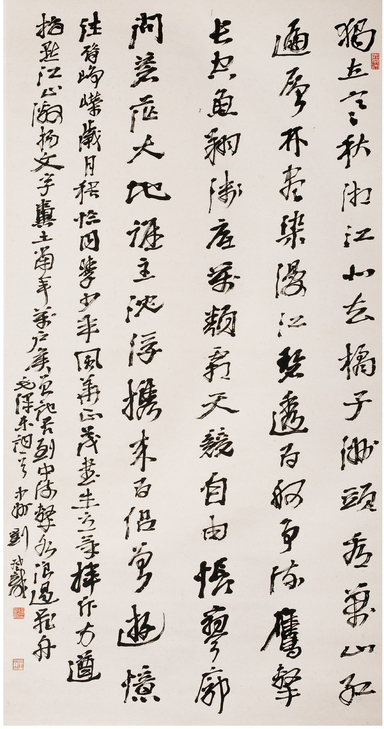 獨立寒秋湘江北去橘子洲頭看萬山紅
遍層林盡染漫江碧透百舸爭流鷹擊
長空魚翔淺底萬類霜天競自由悵寥廓
問蒼茫大地誰主沉浮攜來百侶曾遊憶
往昔崢嶸歲月稠恰同學少年風華正茂書生意氣揮斥方遒
指點江山激揚文字糞土當年萬戶侯曾記否到中流擊水浪遏飛舟
毛澤東詞一首 劉